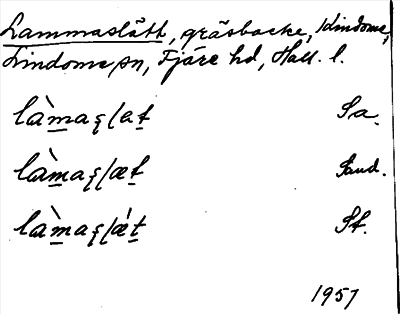 Lammaslått, gräsbacke, Kindome,
Lindome sn, Fjäre hd, Hall. l.
là̱maꞩlat̠ Sa.
là̱maꞩlæt̠ Sand.
là̱maꞩlǽt̠ St.
1957